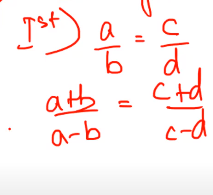 Ist) a/b = c/d
a+b/a-b = c+d/c-d